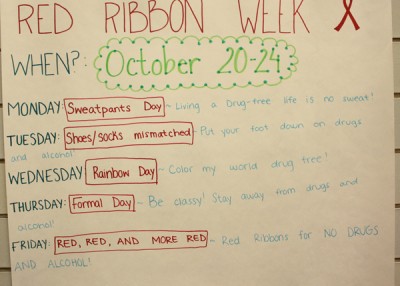 RED RIBBON WEEK
WHEN?: October 20-24
MONDAY: Sweatpants Day ~ Living a Drug-free life is no sweat!
TUESDAY: Shoes/socks mismatched ~ Put your foot down on drugs
and alcohol!
WEDNESDAY: Rainbow Day ~ Color my world drug free!
THURSDAY: Formal Day ~ Be classy! Stay away from drugs and
alcohol!
FRIDAY: RED, RED, AND MORE RED ~ Red Ribbons for NO DRUGS
AND ALCOHOL!